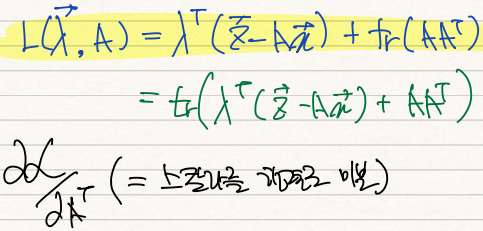 L(λ⃗, A) = λᵀ(z⃗ - Ax⃗) + tr(AAᵀ)
= tr(λᵀ(z⃗ - Ax⃗) + AAᵀ)
∂L/∂Aᵀ (= 스칼라를 행렬로 미분)